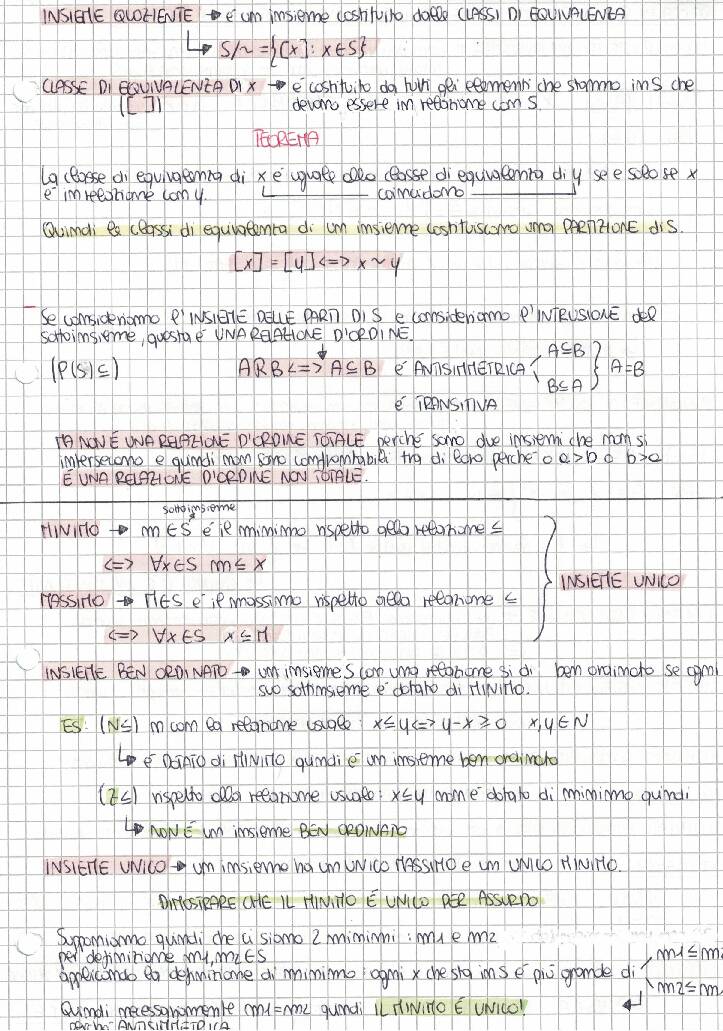 INSIEME QUOZIENTE → é um insieme costituito dalle CLASSI DI EQUIVALENZA
↳ S/~ = {[x]: x∈S}
CLASSE DI EQUIVALENZA DI X → é costituito da tutti gli elementi che stanno in S che
([ ]) devono essere in relazione con S.
TEOREMA
La classe di equivalenza di x é uguale alla classe di equivalenza di y se e solo se x
é in relazione con y. coincidono
Quindi le classi di equivalenza di un insieme costituiscono una PARTIZIONE di S.
[x] = [y] <=> x ~ y
Se consideriamo l'INSIEME DELLE PARTI DI S e consideriamo l'INTRUSIONE del
sottoinsieme, questa é UNA RELAZIONE D'ORDINE.
(P(S)⊆) ARB <=> A⊆B é ANTISIMMETRICA A⊆B B⊆A } A=B
é TRANSITIVA
MA NON É UNA RELAZIONE D'ORDINE TOTALE perché sono due insiemi che non si
intersecano e quindi non sono confrontabili tra di loro perché o a>b o b>a
É UNA RELAZIONE D'ORDINE NON TOTALE.
sottoinsieme
MINIMO → m∈S é il minimo rispetto alla relazione ≤
<=> ∀x∈S m≤x
INSIEME UNICO
MASSIMO → M∈S é il massimo rispetto alla relazione ≤
<=> ∀x∈S x≤M
INSIEME BEN ORDINATO → un insieme S con una relazione si di ben ordinato se ogni
suo sottinsieme é dotato di MINIMO.
ES: (N≤) n con la relazione usuale: x≤y<=> y-x≥0 x,y∈N
↳ é DOTATO di MINIMO quindi é un insieme ben ordinato
(Z≤) rispetto alla relazione usuale: x≤y non é dotato di mimimno quindi
↳ NON É un insieme BEN ORDINATO
INSIEME UNICO → un insieme ha un UNICO MASSIMO e un UNICO MINIMO.
DIMOSTRARE CHE IL MINIMO É UNICO PER ASSURDO
Supponiamo quindi che ci siano 2 minimi: m1 e m2
per definizione m1,m2∈S
applicando la definizione di minimo: ogni x che sta in S é più grande di m1≤m2
m2≤m
Quindi necessariamente m1=m2 quindi IL MINIMO É UNICO!
perché ANTISIMMETRICA